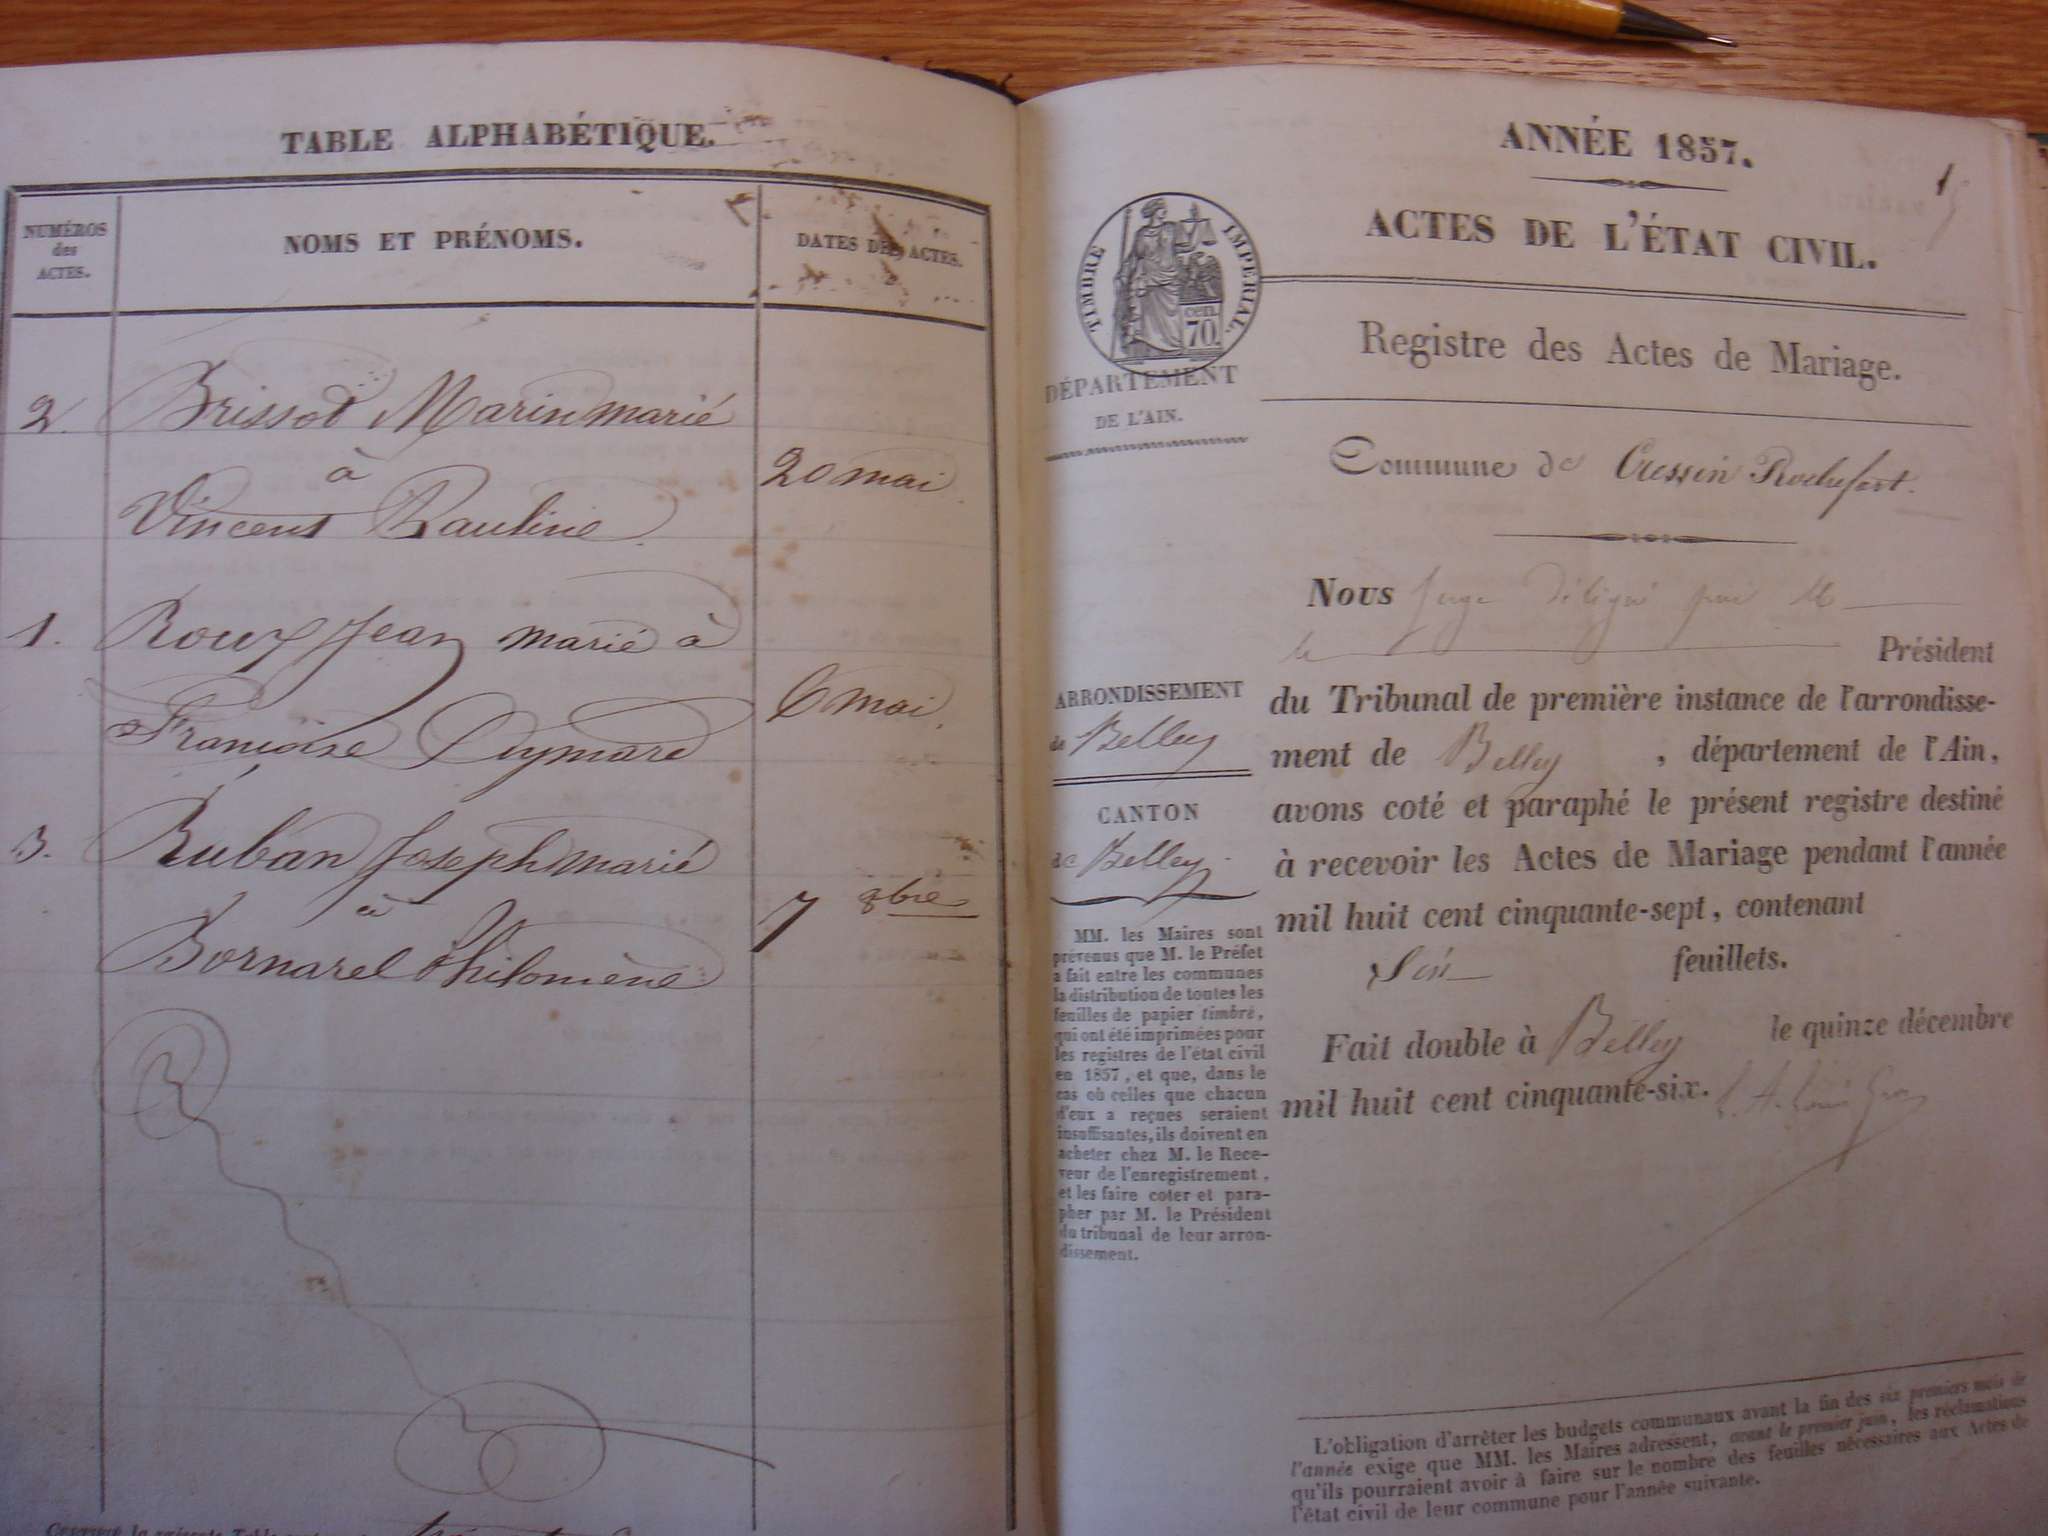 TABLE ALPHABÉTIQUE.
NUMÉROS
des
ACTES.
NOMS ET PRÉNOMS.
DATES DES ACTES.
2. Brissot Marin marié
à
20 mai
Vincent Pauline
1. Roux Jean marié à
6 mai.
Françoise Eymard
3. Ruban Joseph marié
à
7 9bre
Bornarel Philomène
ANNÉE 1857.
1
ACTES DE L'ÉTAT CIVIL.
TIMBRE IMPERIAL.
CEN. 70
Registre des Actes de Mariage.
DÉPARTEMENT
DE L'AIN.
Commune de Cressin Rochefort.
Nous juge délégué par M
le Président
du Tribunal de première instance de l'arrondisse-
ment de Belley, département de l'Ain,
avons coté et paraphé le présent registre destiné
à recevoir les Actes de Mariage pendant l'année
mil huit cent cinquante-sept, contenant
Six feuillets.
Fait double à Belley le quinze décembre
mil huit cent cinquante-six.
ARRONDISSEMENT
de Belley
CANTON
de Belley
MM. les Maires sont
prévenus que M. le Préfet
a fait entre les communes
la distribution de toutes les
feuilles de papier timbré,
qui ont été imprimées pour
les registres de l'état civil
en 1857, et que, dans le
cas où celles que chacun
d'eux a reçues seraient
insuffisantes, ils doivent en
acheter chez M. le Rece-
veur de l'enregistrement,
et les faire coter et para-
pher par M. le Président
du tribunal de leur arron-
dissement.
L'obligation d'arrêter les budgets communaux avant la fin des six premiers mois de
l'année exige que MM. les Maires adressent, avant le premier juin, les réclamations
qu'ils pourraient avoir à faire sur le nombre des feuilles nécessaires aux Actes de
l'état civil de leur commune pour l'année suivante.